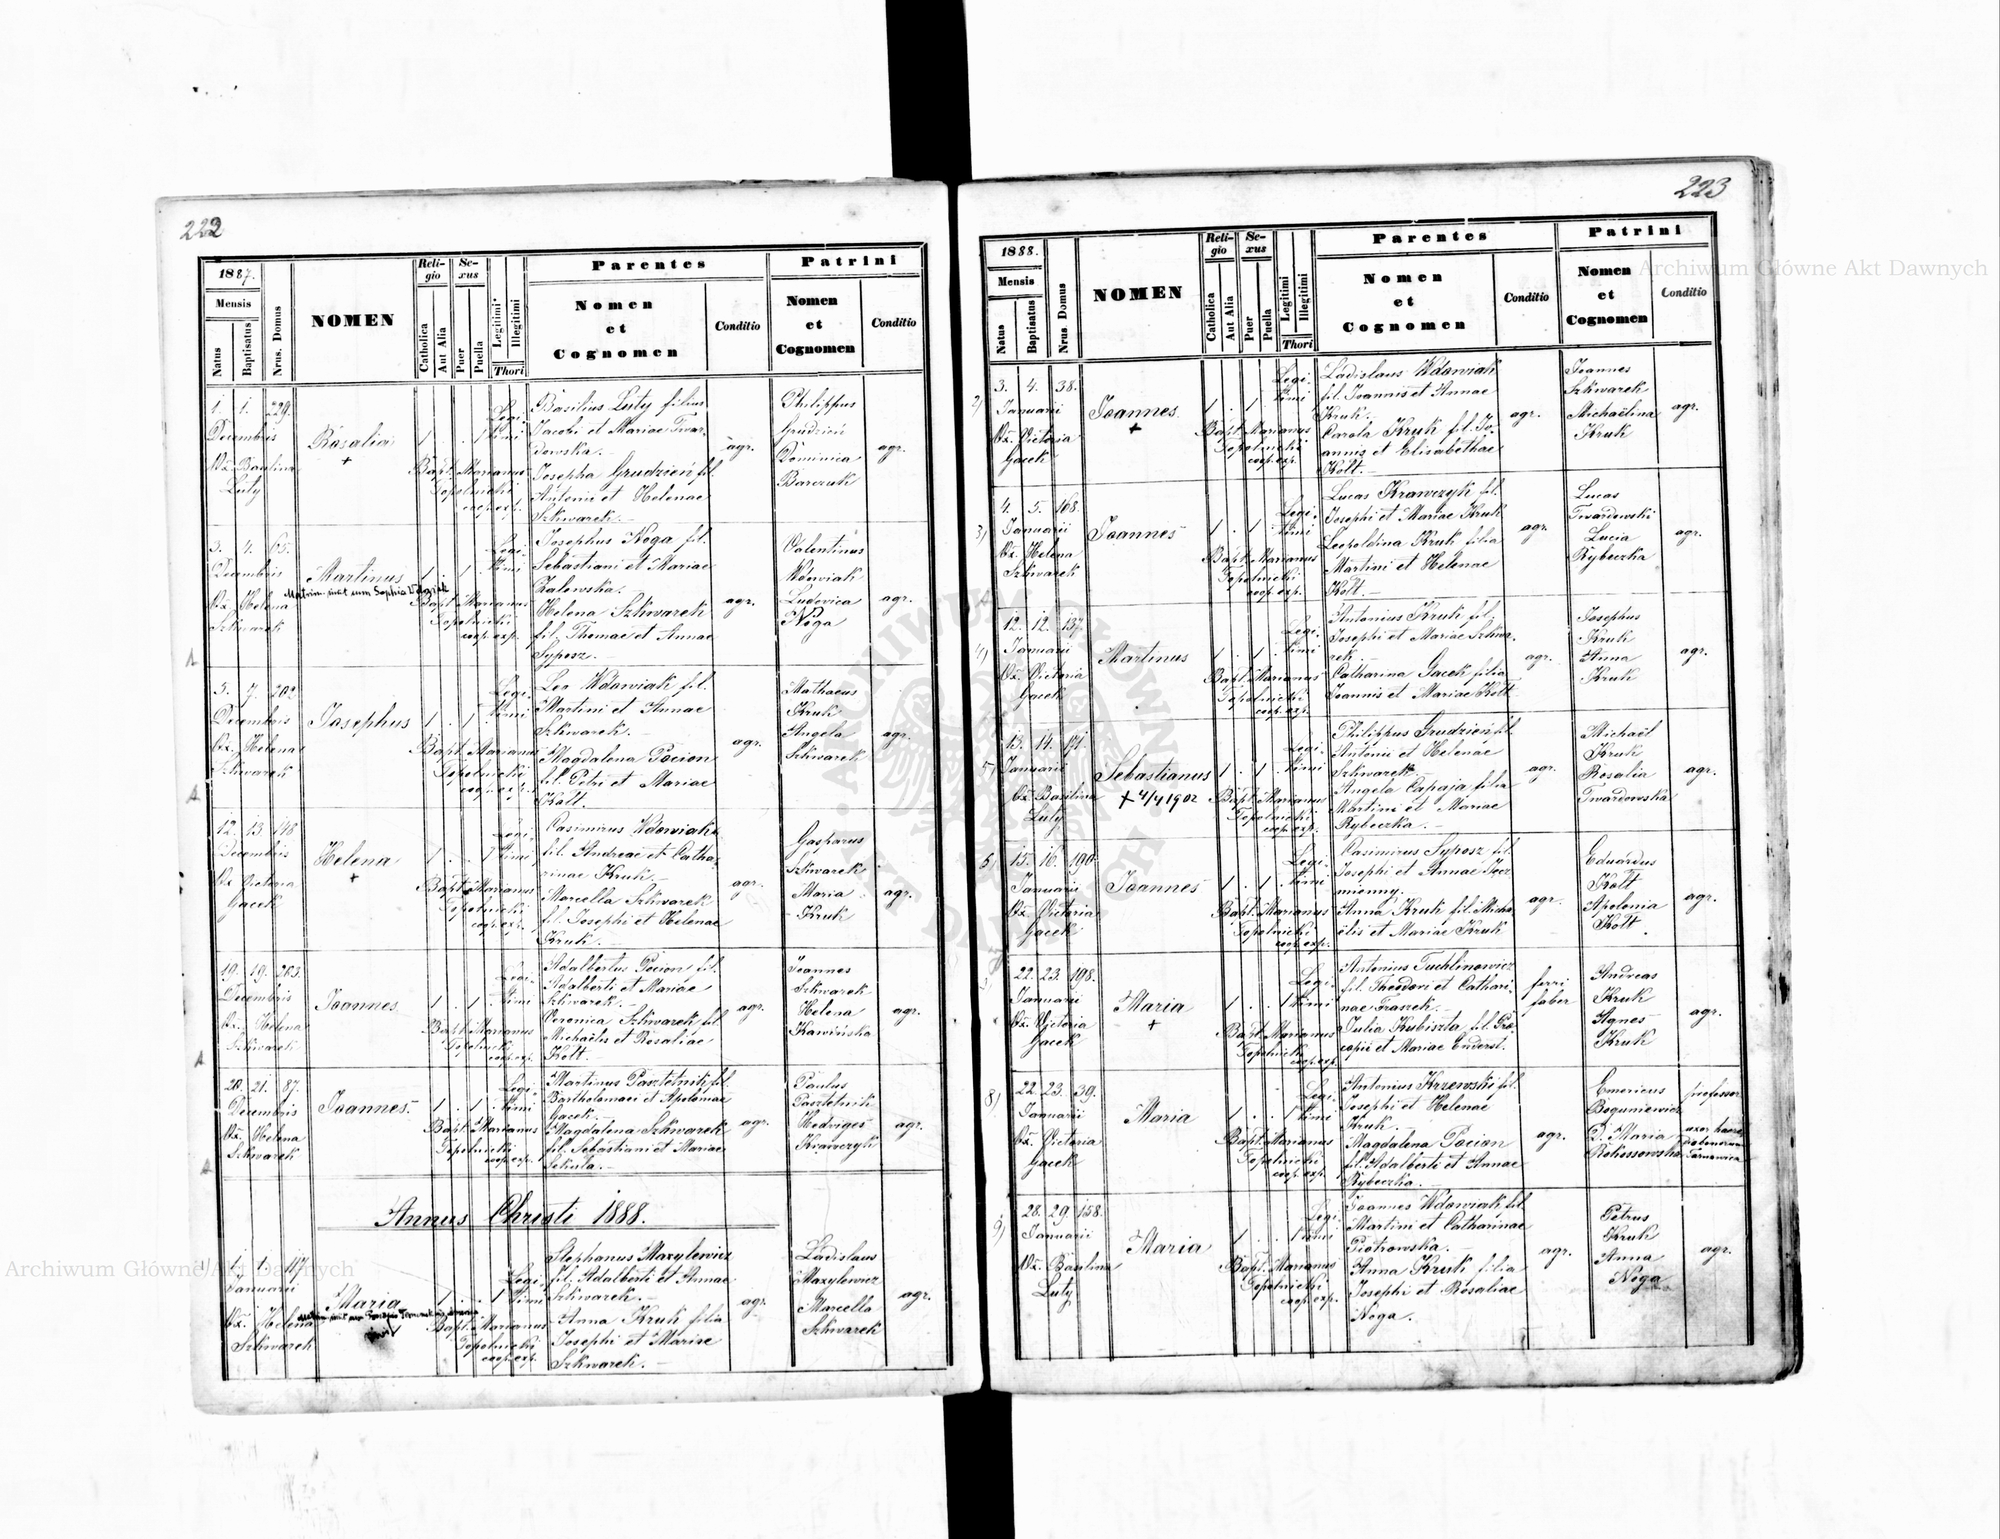 222
1887.
Mensis
Natus
Baptisatus
Nrus. Domus
NOMEN
Religio
Catholica
Aut Alia
Sexus
Puer
Puella
Legitimi
Illegitimi
Thori
Parentes
Nomen
et
Cognomen
Conditio
Patrini
Nomen
et
Cognomen
Conditio
1. 1. 229.
Decembris
Obs. Paulina
Luty
Rosalia
+
1 . . 1
Legi-
timi
Bapt. Marianus
Topolnicki
coop. exp.
Basilius Luty filius
Jacobi et Mariae Twar-
dowska. —
Josepha Grudzień fil.
Antonii et Helenae
Szkwarek. —
agr.
Philippus
Grudzień
Dominica
Barczuk
agr.
3. 4. 65.
Decembris
Obs. Helena
Szkwarek
Martinus
1 . 1 .
Legi-
timi
Bapt. Marianus
Topolnicki
coop. exp.
Josephus Noga fil.
Sebastiani et Mariae
Zalewska.
Helena Szkwarek
fil. Thomae et Annae
Syposz. —
agr.
Valentinus
Wdowiak
Ludovica
Noga
agr.
5. 7. 202
Decembris
Obs. Helena
Szkwarek
Josephus
1 . 1 .
Legi-
timi
Bapt. Marianus
Topolnicki
coop. exp.
Leo Wdowiak fil.
Martini et Annae
Szkwarek. —
Magdalena Pocion
fil. Petri et Mariae
Kott.
agr.
Mathaeus
Kruk
Angela
Szkwarek
agr.
12. 13. 148
Decembris
Obs. Victoria
Gacek
Helena
+
1 . . 1
Legi-
timi
Bapt. Marianus
Topolnicki
coop. exp.
Casimirus Wdowiak
fil. Andreae et Catha-
rinae Kruk. —
Marcella Szkwarek
fil. Josephi et Helenae
Kruk. —
agr.
Gasparus
Szkwarek
Maria
Kruk
agr.
19. 19. 263.
Decembris
Obs. Helena
Szkwarek
Joannes
1 . 1 .
Legi-
timi
Bapt. Marianus
Topolnicki
coop. exp.
Adalbertus Pocion fil.
Adalberti et Mariae
Szkwarek. —
Veronica Szkwarek fil.
Michaëlis et Rosaliae
Kott.
agr.
Joannes
Szkwarek
Helena
Kawińska
agr.
20. 21. 87.
Decembris
Obs. Helena
Szkwarek
Joannes
1 . 1 .
Legi-
timi
Bapt. Marianus
Topolnicki
coop. exp.
Martinus Pasztetnik fil.
Bartholomaei et Apoloniae
Gacek. —
Magdalena Szkwarek
fil. Sebastiani et Mariae
Sekula. —
agr.
Paulus
Pasztetnik
Hedviges
Krawczyk
agr.
Annus Christi 1888.
1. 1. 117.
Januarii
Obs. Helena
Szkwarek
Maria
1 . . 1
Legi-
timi
Bapt. Marianus
Topolnicki
coop. exp.
Stephanus Mazylewicz
fil. Adalberti et Annae
Szkwarek. —
Anna Kruk filia
Josephi et Mariae
Szkwarek. —
agr.
Ladislaus
Mazylewicz
Marcella
Szkwarek
agr.
223
1888.
Mensis
Natus
Baptisatus
Nrus Domus
NOMEN
Religio
Catholica
Aut Alia
Sexus
Puer
Puella
Legitimi
Illegitimi
Thori
Parentes
Nomen
et
Cognomen
Conditio
Patrini
Nomen
et
Cognomen
Conditio
2)
3. 4. 38.
Januarii
Obs. Victoria
Gacek
Joannes
+
1 . 1 .
Legi-
timi
Bapt. Marianus
Topolnicki
coop. exp.
Ladislaus Wdowiak
fil. Joannis et Annae
Kruk. —
Carola Kruk fil. Jo-
annis et Elisabethae
Kott. —
agr.
Joannes
Szkwarek
Michaëlina
Kruk
agr.
3)
4. 5. 168.
Januarii
Obs. Helena
Szkwarek
Joannes
1 . 1 .
Legi-
timi
Bapt. Marianus
Topolnicki
coop. exp.
Lucas Krawczyk fil.
Josephi et Mariae Kruk
Leopoldina Kruk filia
Martini et Helenae
Kott. —
agr.
Lucas
Twardowski
Lucia
Rybeczka
agr.
4)
12. 12. 137.
Januarii
Obs. Victoria
Gacek
Martinus
1 . 1 .
Legi-
timi
Bapt. Marianus
Topolnicki
coop. exp.
Antonius Kruk fil.
Josephi et Mariae Szkwa-
rek. —
Catharina Gacek filia
Joannis et Mariae Kott
agr.
Josephus
Kruk
Anna
Kruk
agr.
5)
13. 14. 171.
Januarii
Obs. Basilina
Luty
Sebastianus
+ 4/4 1902
1 . 1 .
Legi-
timi
Bapt. Marianus
Topolnicki
coop. exp.
Philippus Grudzień fil.
Antonii et Helenae
Szkwarek
Angela Capaja filia
Martini et Mariae
Rybeczka. —
agr.
Michaël
Kruk
Rosalia
Twardowska
agr.
6)
15. 16. 190.
Januarii
Obs. Victoria
Gacek
Joannes
1 . 1 .
Legi-
timi
Bapt. Marianus
Topolnicki
coop. exp.
Casimirus Syposz fil.
Josephi et Annae Jęcz-
mienny. —
Anna Kruk fil. Micha-
ëlis et Mariae Kruk
agr.
Eduardus
Kott
Apolonia
Kott.
agr.
22. 23. 198.
Januarii
Obs. Victoria
Gacek
Maria
+
1 . . 1
Legi-
timi
Bapt. Marianus
Topolnicki
coop. exp.
Antonius Tuchlinowicz
fil. Theodori et Cathari-
nae Fraszek. —
Julia Kubiszta fil. Pro-
copii et Mariae Enderst.
ferri
faber
Andreas
Kruk
Agnes
Kruk
agr.
8)
22. 23. 39.
Januarii
Obs. Victoria
Gacek
Maria
1 . . 1
Legi-
timi
Bapt. Marianus
Topolnicki
coop. exp.
Antonius Krzewski fil.
Josephi et Helenae
Kruk. —
Magdalena Pocion
fil. Adalberti et Annae
Rybeczka. —
agr.
Emericus
Boguniewicz
D. Maria
Rokossowska
professor
9)
28. 29. 158.
Januarii
Obs. Basilina
Luty
Maria
1 . . 1
Legi-
timi
Bapt. Marianus
Topolnicki
coop. exp.
Joannes Wdowiak fil.
Martini et Catharinae
Piotrowska. —
Anna Kruk filia
Josephi et Rosaliae
Noga.
agr.
Petrus
Kruk
Anna
Noga
agr.
Archiwum Główne Akt Dawnych
Archiwum Główne Akt Dawnych
ARCHIWUM GŁÓWNE AKT DAWNYCH